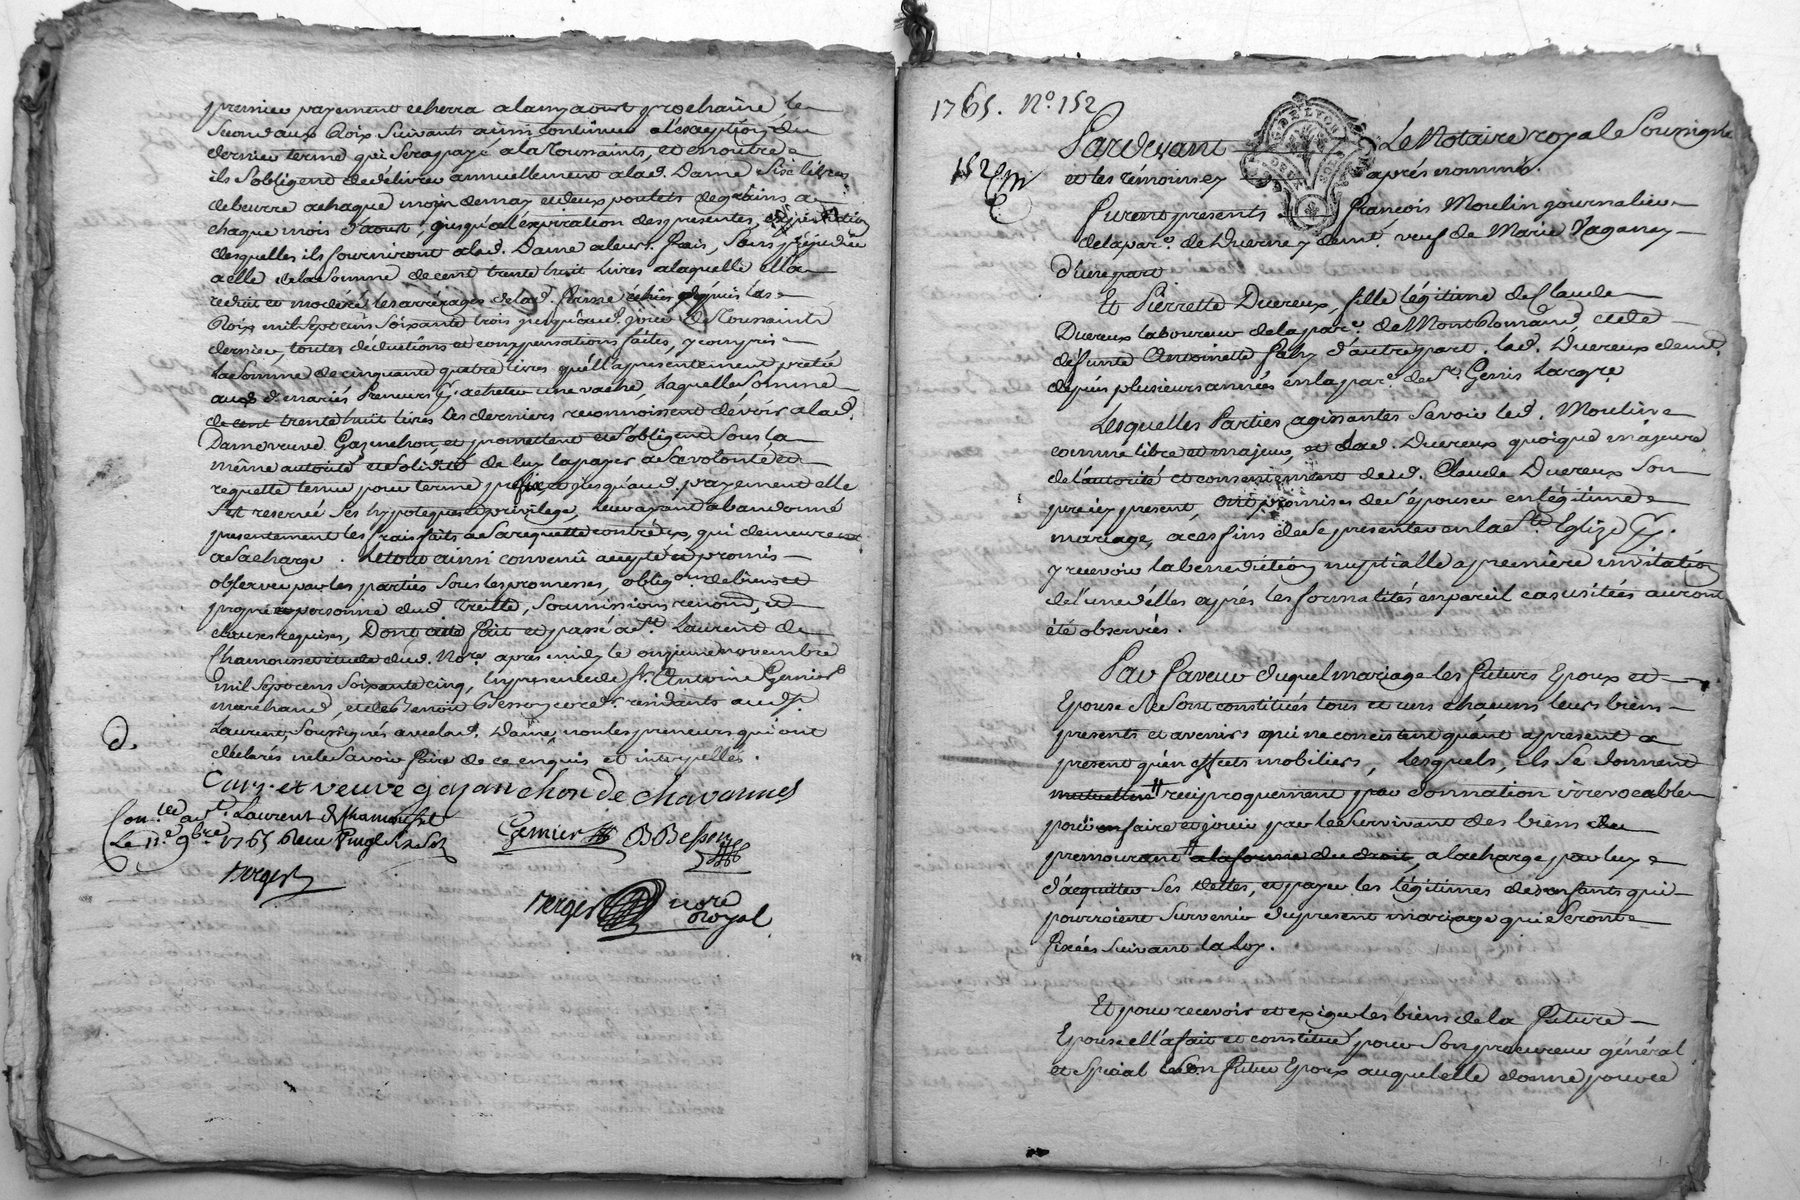 premier payement echerra alamy aoust prochaine le
second aux Roix suivants ainsi continuer a l'exception du
dernier terme qui sera payé a la Toussaints, et en outre
ils s'obligent de délivrer annuellement a lad. Dame six livres
de beurre a chaque mois de may et deux poulets de grains a
chaque mois d'aoust, jusqu'a l'expiration des presentes, expedition
desquelles ils fourniront a lad. Dame a leurs frais, sans préjudice
a elle de la somme de cent trente huit livres a laquelle elle a
reduit et moderé les arrérages de lad. ferme échus depuis las
Roix mil sept cens soixante trois jusqu'aud. jour de Toussaints
dernier, toutes déductions et compensations faites, y compris
la somme de cinquante quatre livres qu'ell'a presentement preté
auxd. mariés Preneurs pr. acheter une vache, laquelle somme
de cent trente huit livres les derniers reconnoissent dévoir a lad.
Dame veuve Gayanchon, et promettent et s'obligent sous la
même autorité et solidité de luy la payer a sa volonté et
requette tenue pour terme prefix, et jusqu'aud. payement elle
s'est reservée ses hypoteques et privilege, leur ayant abandonné
presentement les frais faits a sa requette contr'eux, qui demeureront
a sa charge. Le tout ainsi convenu accepté et promis
observer par les parties sous les promesses, oblig.ons de biens et
propre personne dud. Treille, soumissions, renond. et
clauses requises, Dont acte fait et passé a St. Laurent de
Chamousset etude dud. No.re après midy le onzieme novembre
mil sept cens soixante cinq, en presence de Sr. Antoine Garnier
marchand, et de Benoit Besson cord.r residants aud. St.
Laurent soussignés avec lad. Dame, non les preneurs qui ont
declarés ne le savoir faire de ce enquis et interpellés.
Cary et veuve gayanchon de chavannes
Con.lée a St. Laurent de Chamousset
Le 11.e 9.bre 1765 Reçu
Garnier B Besson
Berger
Berger nore
Royal
1765. N.o 152
152
G. DE LYON
DEUX SOLS
Pardevant Le Notaire royal e Soussigné
et les témoins cy après nommés.
Furent presents François Moulin journalier
de la par.e de Duerne y dem.t veuf de Marie Vaganey
d'une part
Et Pierrette Ducreux, fille légitime de Claude
Ducreux laboureur de la par.e de Montromand et de
defunte Antoinette Fahy d'autre part. lad. Ducreux dem.t
depuis plusieurs années en la par.e de St. Genis Largre
Lesquelles Parties agissantes savoir led. Moulin
comme libre et majeur, et lad. Ducreux quoique majeure
de l'autorité et consentement dud. Claude Ducreux son
pere icy present, ont promises de s'épouser en légitime
mariage, a ces fins de se presenter en la Ste. Eglise pr.
y recevoir la benediction nuptialle a premiere invitation
de l'une d'elles après les formalités en pareil cas usitées auront
été observées.
Par faveur duquel mariage les futurs Epoux et
Epouse se sont constitués tous et uns chacuns leurs biens
presents et avenirs qui ne consistent quant a present a
present qu'en effets mobiliers, lesquels, ils se donnent
mutuellem.t reciproquement par donnation irrevocable
pour en faire et jouir par le survivant des biens du
premourant a la forme du droit, a la charge par luy
d'acquitter ses dettes, et payer les légitimes des enfants qui
pourroient survenir du present mariage qui seront
fixées suivant la loy.
Et pour recevoir et exiger les biens de la future
Epouse ell'a fait et constitué pour son procureur général
et special led. son futur Epoux auquel elle donne pouvoir